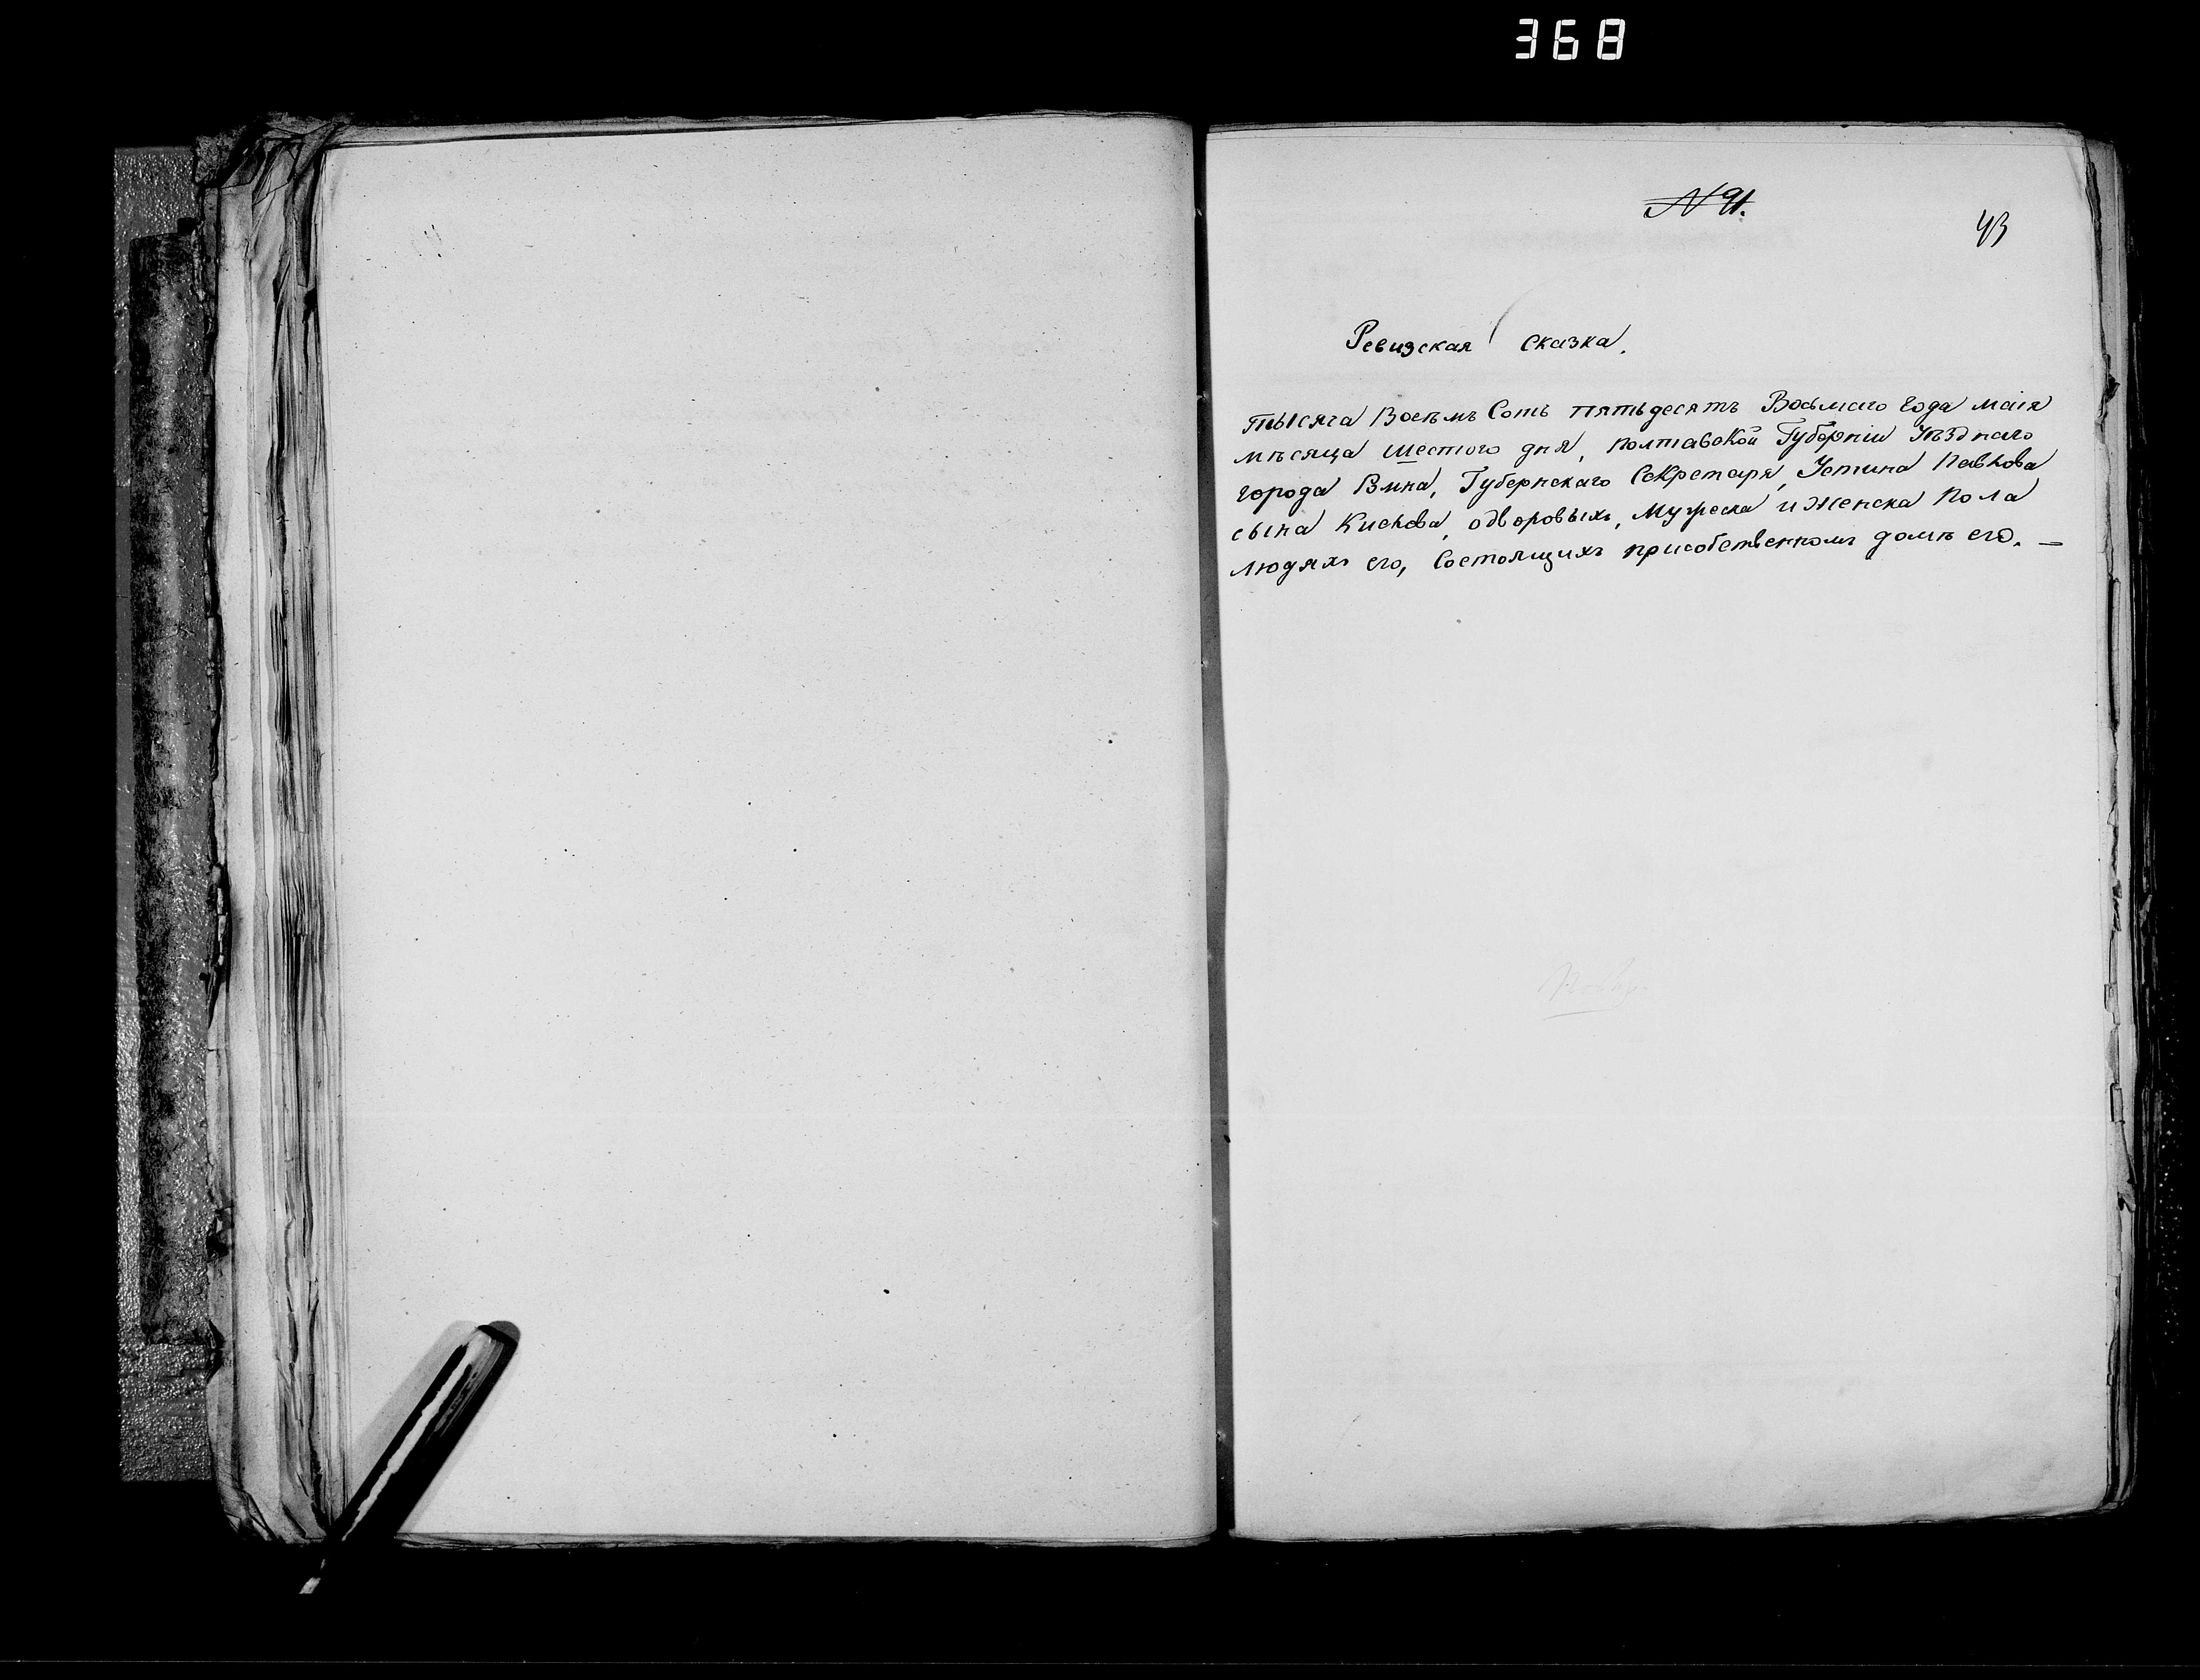 368
N 91.
43
Ревизская Сказка.
тысяча Воемъ Сотъ пятьдесятъ Восьмаго Года маія
мѣсяца шестого дня, полтавской Губерніи Уѣзднаго
города Губернскаго Секретаря, Устина Павлова
сына одворовыхъ, Мужеска и Женска Пола
людяхъ его, Состоящихъ присобственномъ домѣ его. —